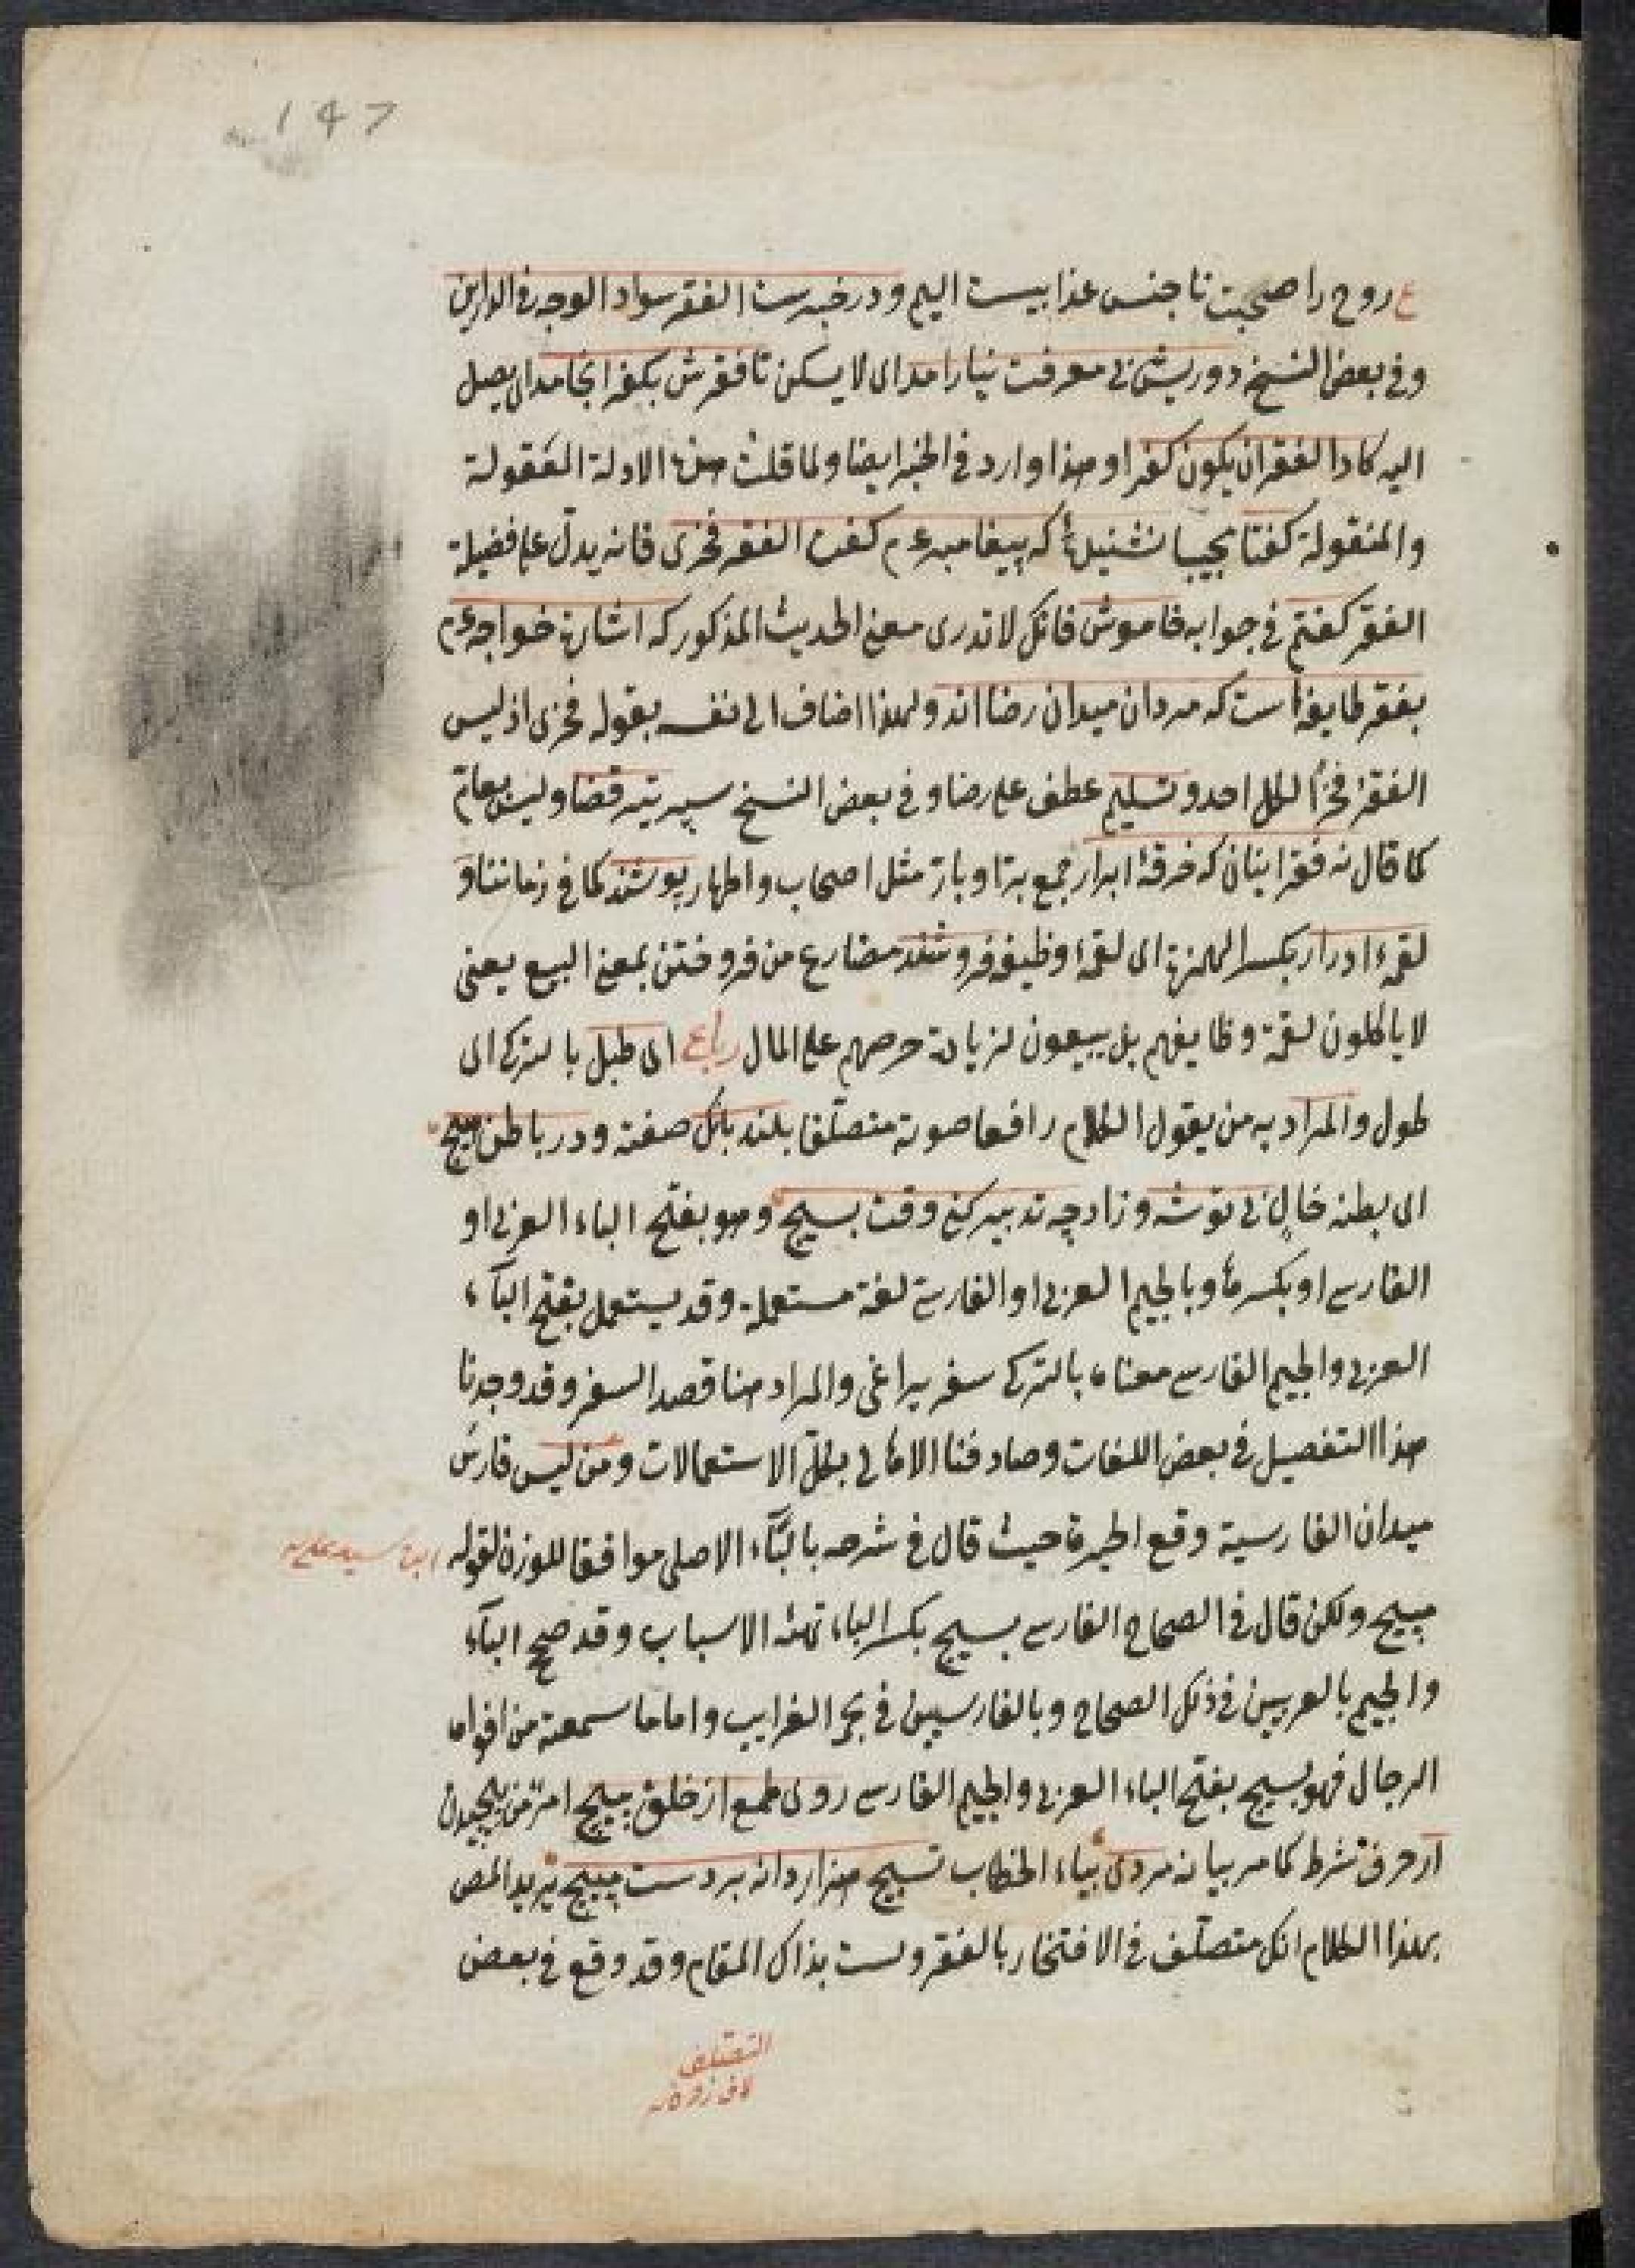 147
ع روح را صحبت ناجنس عذابیست الیم ودر خبرست الفقر سواد الوجه فی الدارین
وفی بعض النسخ درویش بی معرفت نیارامد ای لا یسکن تا فقرش بکفر انجامد ای یصل
الیه کاد الفقر ان یکون کفرا وهذا وارد فی الخبر ایضا ولما قلت هذه الادلة المعقولة
والمنقولة کفتا مجیبا نشنیدۀ که پیغامبر ء م کفت الفقر فخری فانه یدل علی فضیلة
الفقر کفتم فی جوابه خاموش فانک لا تدری معنی الحدیث المذکور که اشارت خواجه ء م
بفقر طایفۀ است که مردان میدان رضا اند ولهذا اضاف الی نفسه بقوله فخری اذ لیس
الفقر فخرا لکل احد وتسلیم عطف علی رضا وفی بعض النسخ سپر تیر قضا ولیس بعام
کما قال نه فقر اینان که خرقۀ ابرار جمع بر او بار مثل اصحاب واطهار پوشند کما فی زماننا و
لقمۀ ادرار بکسر الهمزة ای لقمۀ وظیفه فروشند مضارع من فروختن بمعنی البیع یعنی
لا یاکلون لقمة وظایفهم بل یبیعون لزیادة حرصهم علی المال رباع ای طبل بالترکی ای
طول والمراد به من یقول الکلام رافعا صوته متصلفا بلند بانک صفته ودر باطن هیچ
ای بطنه خال بی توشه وزاد چه تدبیر کنی وقت بسیج وهو بفتح الباء العربی او
الفارسی او بکسرها وبالجیم العربی او الفارسی لغة مستعملة وقد یستعمل بفتح الباء
العربی والجیم الفارسی معناه بالترکی سفر یراغی والمراد هنا قصد السفر وقد وجدنا
هذا التفصیل فی بعض اللغات وصادفنا الاهالی بکل الاستعمالات ومن لیس فارس
میدان الفارسیة وقع الحیرة حیث قال فی شرحه بالباء الاصلی موافقا للوزن لقوله
هیچ ولکن قال فی الصحاح الفارسی بسیج بکسر الباء تهئه الاسباب وقد صح الباء
والجیم بالعربیین فی ذلک الصحاح وبالفارسیین فی بحر الغرایب واما ما سمعته من افواه
الرجال فهو بسیج بفتح الباء العربی والجیم الفارسی روی طمع از خلق بپیچ امر من پیچیدن
ار حرف شرط کما مر بیانه مردی بیاء الخطاب تسبیح هزار دانه بر دست مپیچ یرید المص
بهذا الکلام انک متصلف فی الافتخار بالفقر ولست بذاک المقام وقد وقع فی بعض
التصلف
لاف زدن